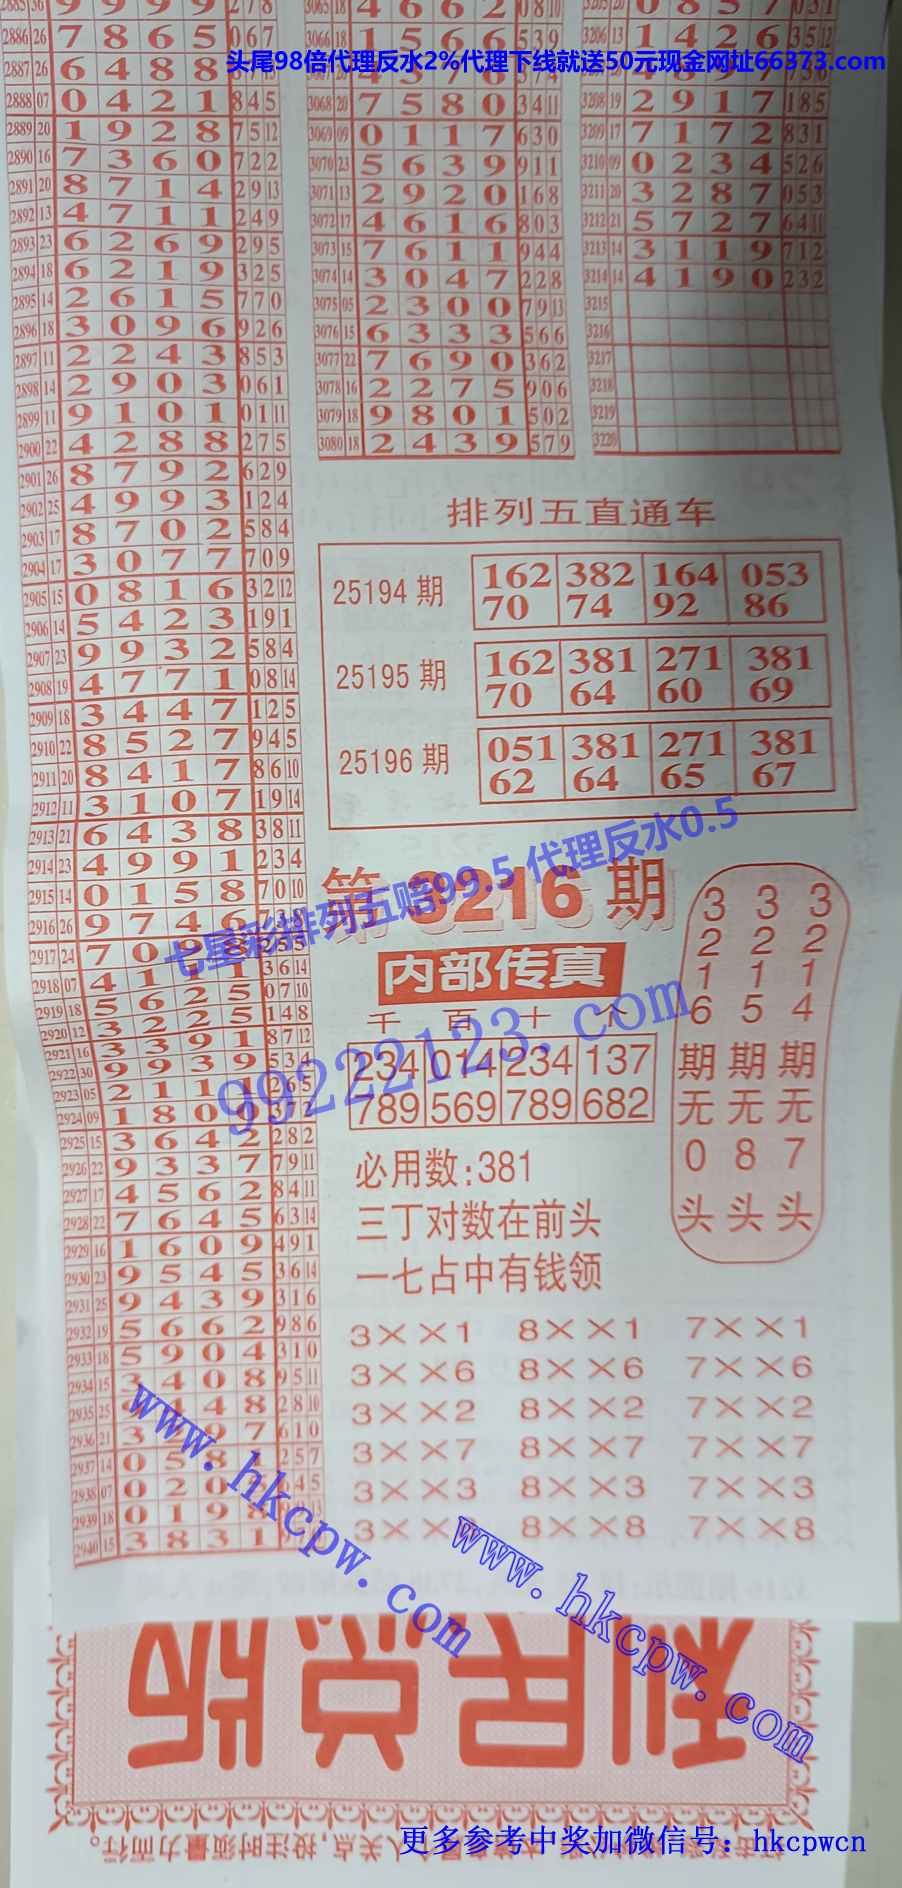 头尾98倍代理反水2%代理下线就送50元现金网址66373.com
2886 26 7 8 6 5 0 6 7
2887 26 6 4 8 8
2888 07 0 4 2 1 8 4 5
2889 20 1 9 2 8 7 5 12
2890 16 7 3 6 0 7 2 2
2891 20 8 7 1 4 2 9 13
2892 13 4 7 1 1 2 4 9
2893 23 6 2 6 9 2 9 5
2894 18 6 2 1 9 3 2 5
2895 14 2 6 1 5 7 7 0
2896 18 3 0 9 6 9 2 6
2897 11 2 2 4 3 8 5 3
2898 14 2 9 0 3 0 6 1
2899 11 9 1 0 1 0 1 11
2900 22 4 2 8 8 2 7 5
2901 26 8 7 9 2 6 2 9
2902 25 4 9 9 3 1 2 4
2903 17 8 7 0 2 5 8 4
2904 17 3 0 7 7 7 0 9
2905 15 0 8 1 6 3 2 12
2906 14 5 4 2 3 1 9 1
2907 23 9 9 3 2 5 8 4
2908 19 4 7 7 1 0 8 14
2909 18 3 4 4 7 1 2 5
2910 22 8 5 2 7 9 4 5
2911 20 8 4 1 7 8 6 10
2912 11 3 1 0 7 1 9 14
2913 21 6 4 3 8 3 8 11
2914 23 4 9 9 1 2 3 4
2915 14 0 1 5 8 7 0 10
2916 26 9 7 4 6
2917 24 7 0 9 8 2 5 5
2918 07 4 1 1 1 3 6 14
2919 18 5 6 2 5 0 7 10
2920 12 3 2 2 5 1 4 8
2921 16 3 3 9 1 8 7 12
2922 30 9 9 3 9 5 3 4
2923 05 2 1 1 1 2 6 5
2924 09 1 8 0 9 3 7 2
2925 15 3 6 4 2 2 8 2
2926 22 9 3 3 7 7 9 11
2927 17 4 5 6 2 8 4 11
2928 22 7 6 4 5 6 3 14
2929 16 1 6 0 9 4 9 1
2930 23 9 5 4 5 3 6 14
2931 25 9 4 3 9 3 1 6
2932 19 5 6 6 2 9 8 6
2933 18 5 9 0 4 3 1 0
2934 15 3 4 0 8 9 5 11
2935 25 4 8 2 8 10
2936 21 3 9 7 6 1 0
2937 14 0 5 8 1 2 5 7
2938 07 0 2 0 6 4 5
2939 18 0 1 9 8
2940 15 3 8 3 1
3066 18 1 5 6 6 5 3 9
3068 20 7 5 8 0 3 4 11
3069 09 0 1 1 7 6 3 0
3070 23 5 6 3 9 9 1 1
3071 13 2 9 2 0 1 6 8
3072 17 4 6 1 6 8 0 3
3073 15 7 6 1 1 9 4 4
3074 14 3 0 4 7 2 2 8
3075 05 2 3 0 0 7 9 13
3076 15 6 3 3 3 5 6 6
3077 22 7 6 9 0 3 6 2
3078 16 2 2 7 5 9 0 6
3079 18 9 8 0 1 5 0 2
3080 18 2 4 3 9 5 7 9
3206 13 1 4 2 6 3 5 12
3208 19 2 9 1 7 1 8 5
3209 17 7 1 7 2 8 3 1
3210 09 0 2 3 4 5 2 6
3211 20 3 2 8 7 0 5 3
3212 21 5 7 2 7 6 4 11
3213 14 3 1 1 9 7 1 2
3214 14 4 1 9 0 2 3 2
3215
3216
3217
3218
3219
3220
排列五直通车
25194 期 162 382 164 053
70 74 92 86
25195 期 162 381 271 381
70 64 60 69
25196 期 051 381 271 381
62 64 65 67
七星彩排列五赔99.5 代理反水0.5
第 3216 期
内部传真
千 百 十 个
234 014 234 137
789 569 789 682
必用数:381
三丁对数在前头
一七占中有钱领
3 3 3
2 2 2
1 1 1
6 5 4
期 期 期
无 无 无
0 8 7
头 头 头
99222123.com
3××1 8××1 7××1
3××6 8××6 7××6
3××2 8××2 7××2
3××7 8××7 7××7
3××3 8××3 7××3
3×× 8××8 7××8
www.hkcpw.com
www.hkcpw.com
利民总版
更多参考中奖加微信号: hkcpwcn